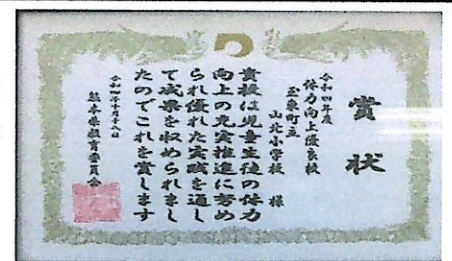 賞状
令和四年度
体力向上優良校
玉東町立
山北小学校 様
貴校は児童生徒の体力
向上の充実推進に努め
られ優れた実践を通し
て成果を収められまし
たのでこれを賞します
令和四年十月十八日
熊本県教育委員会